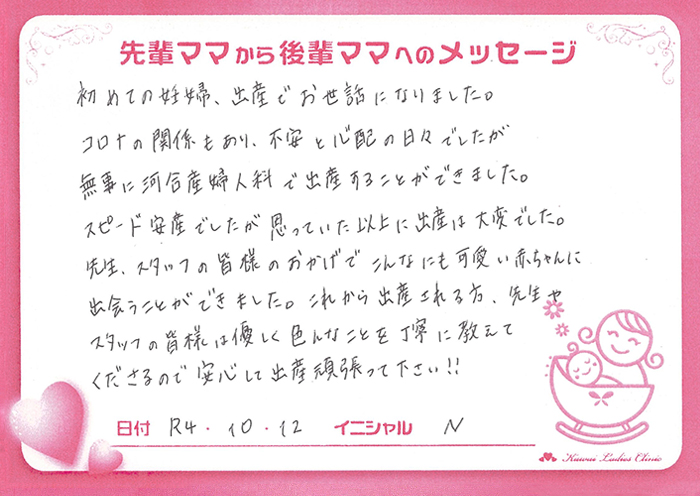 先輩ママから後輩ママへのメッセージ
初めての妊婦、出産でお世話になりました。
コロナの関係もあり、不安と心配の日々でしたが
無事に河合産婦人科で出産することができました。
スピード安産でしたが思っていた以上に出産は大変でした。
先生、スタッフの皆様のおかげでこんなにも可愛い赤ちゃんに
出会うことができました。これから出産される方、先生や
スタッフの皆様は優しく色んなことを丁寧に教えて
くださるので安心して出産頑張って下さい!!
日付 R4・10・12 イニシャル N
Kawai Ladies Clinic